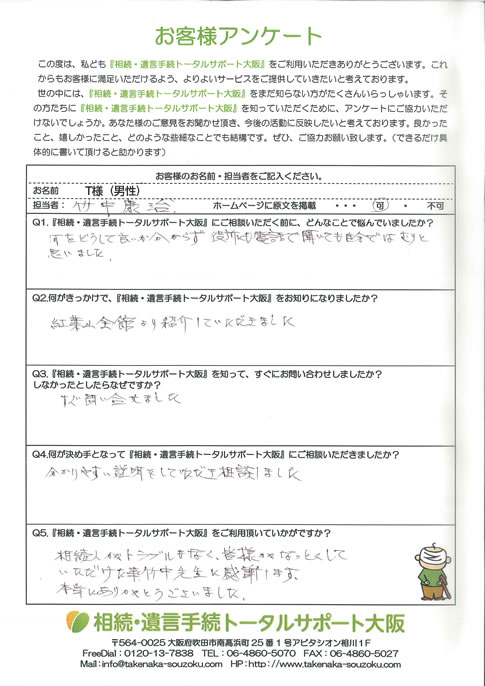 お客様アンケート
この度は、私ども『相続・遺言手続トータルサポート大阪』をご利用いただきありがとうございます。これ
からもお客様に満足いただけるよう、よりよいサービスをご提供していきたいと考えております。
世の中には、『相続・遺言手続トータルサポート大阪』をまだ知らない方がたくさんいらっしゃいます。そ
の方たちに『相続・遺言手続トータルサポート大阪』を知っていただくために、アンケートにご協力いただ
けないでしょうか。あなた様のご意見をお聞かせ頂き、今後の活動に反映したいと考えております。良かった
こと、嬉しかったこと、どのような些細なことでも結構です。ぜひ、ご協力お願い致します。（できるだけ具
体的に書いて頂けると助かります）
お客様のお名前・担当者をご記入ください。
お名前 T様（男性）
担当者： 竹中康治 ホームページに原文を掲載 ・・・ 可 ・ 不可
Q1.『相続・遺言手続トータルサポート大阪』にご相談いただく前に、どんなことで悩んでいましたか？
何をどうして良いか分からず 役所にも電話で聞いても自分ではむりと
思いました。
Q2.何がきっかけで、『相続・遺言手続トータルサポート大阪』をお知りになりましたか？
紅葉山会館より紹介していただきました
Q3.『相続・遺言手続トータルサポート大阪』を知って、すぐにお問い合わせしましたか？
しなかったとしたらなぜですか？
すぐ問い合せました
Q4.何が決め手となって『相続・遺言手続トータルサポート大阪』にご相談いただきましたか？
分かりやすい説明をしていただき相談しました
Q5.『相続・遺言手続トータルサポート大阪』をご利用頂いていかがですか？
相続人がトラブルもなく、皆様がなっとくして
いただけた事竹中先生に感謝します。
本当にありがとうございました。
相続・遺言手続トータルサポート大阪
〒564-0025 大阪府吹田市南高浜町25番1号アビタシオン相川1F
FreeDial：0120-13-7838 TEL：06-4860-5070 FAX：06-4860-5027
Mail：info@takenaka-souzoku.com HP：http://www.takenaka-souzoku.com